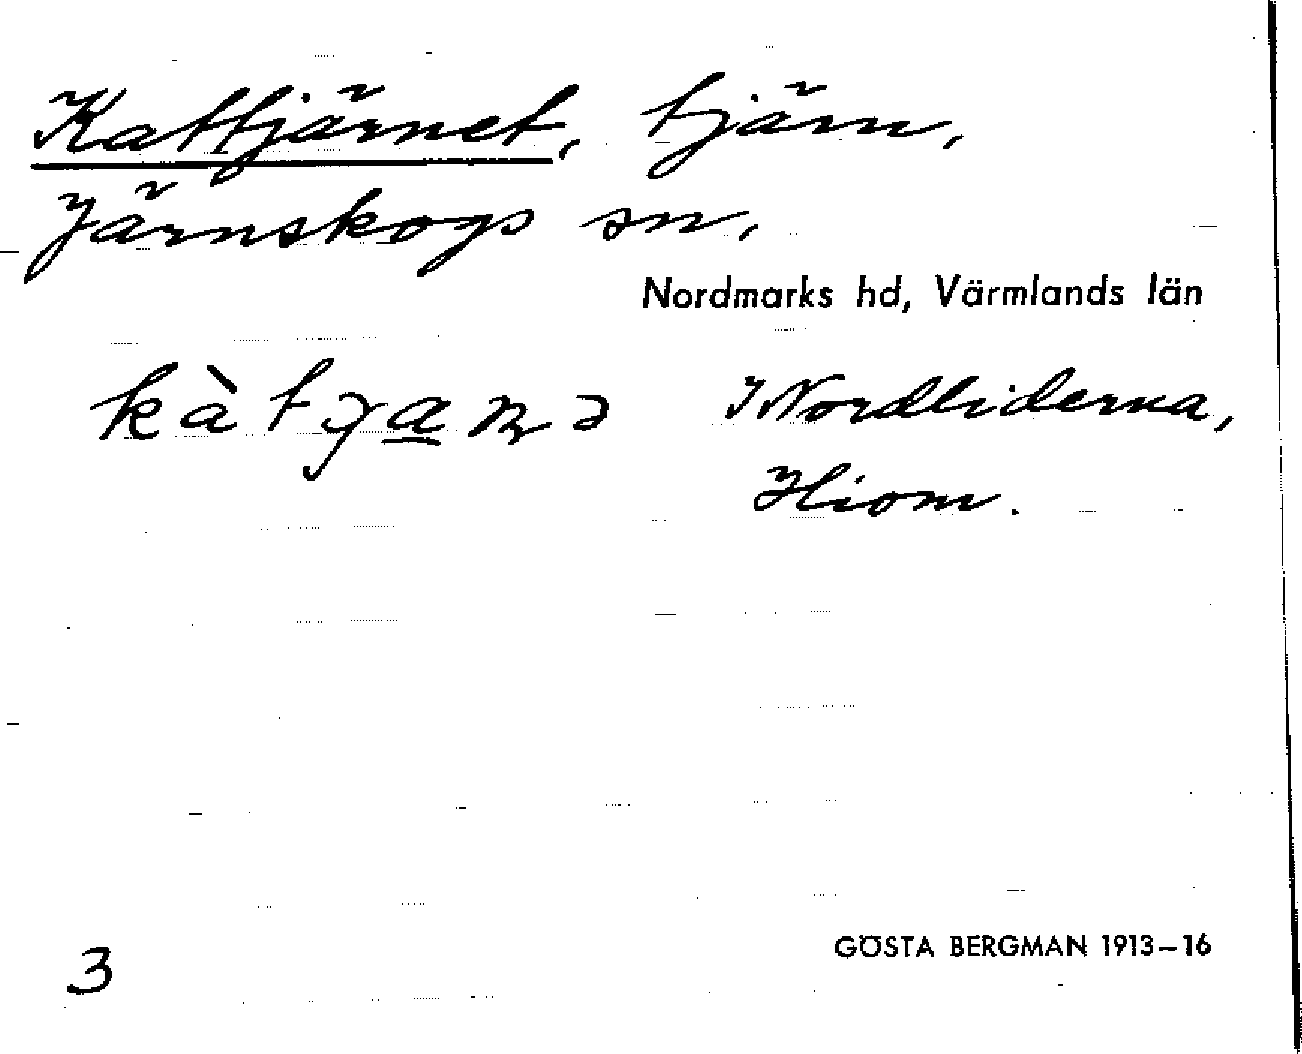 Kattjärnet, tjärn,
Järnskogs sn,
Nordmarks hd, Värmlands län
kàtɟa̲ɳə I Nordliderna,
Hiom.
3
GÖSTA BERGMAN 1913–16